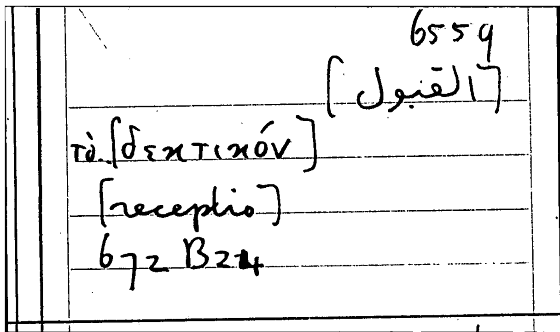 6559
[القبول]
τὸ [δεκτικόν]
[receptio]
672 B24